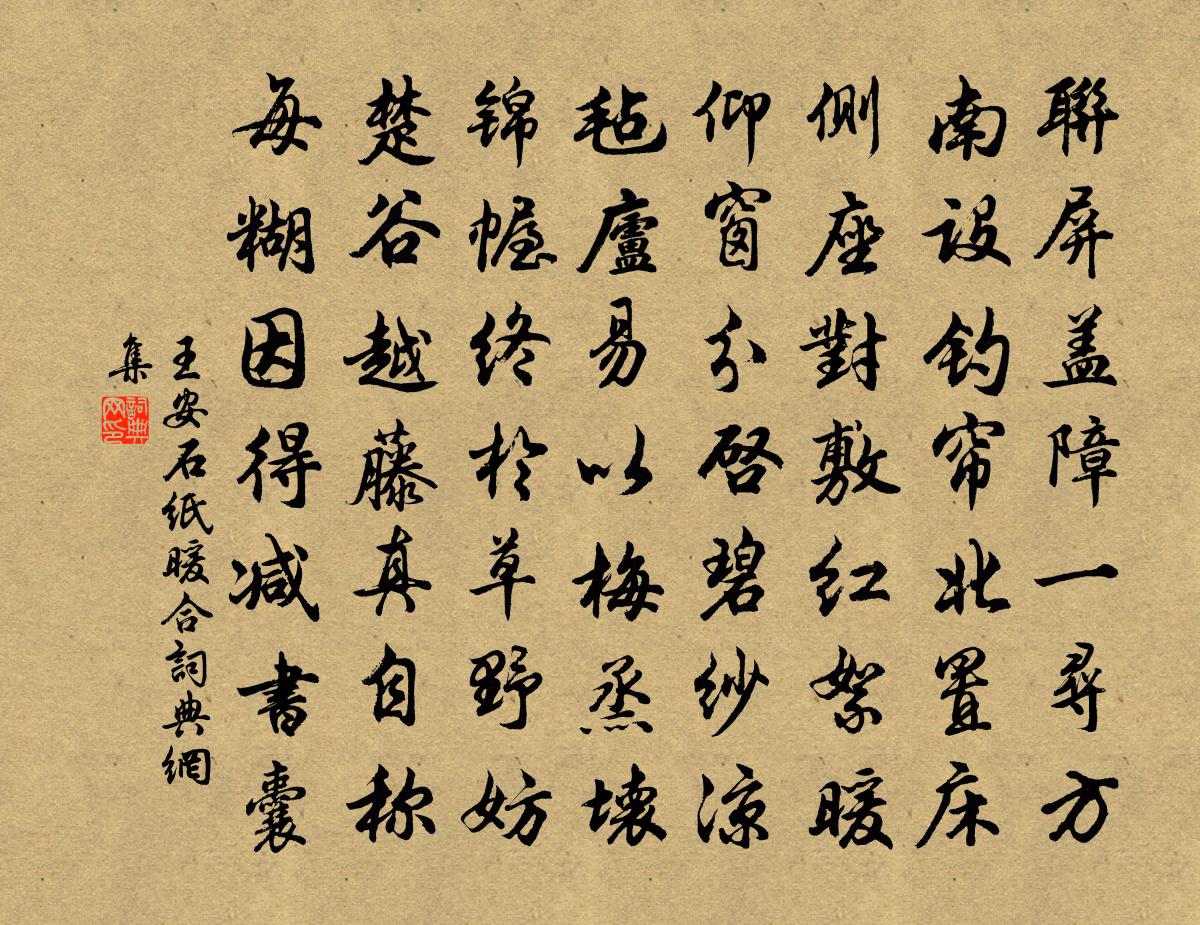 聯屏盖障一尋方
南設鈎帘北置床
側座對敷紅絮暖
仰窗分啓碧紗涼
毡廬易以梅蒸壞
锦幄终於草野妨
楚谷越藤真自称
每糊因得减書囊
王安石纸暖合詞典網
集
詞典网印